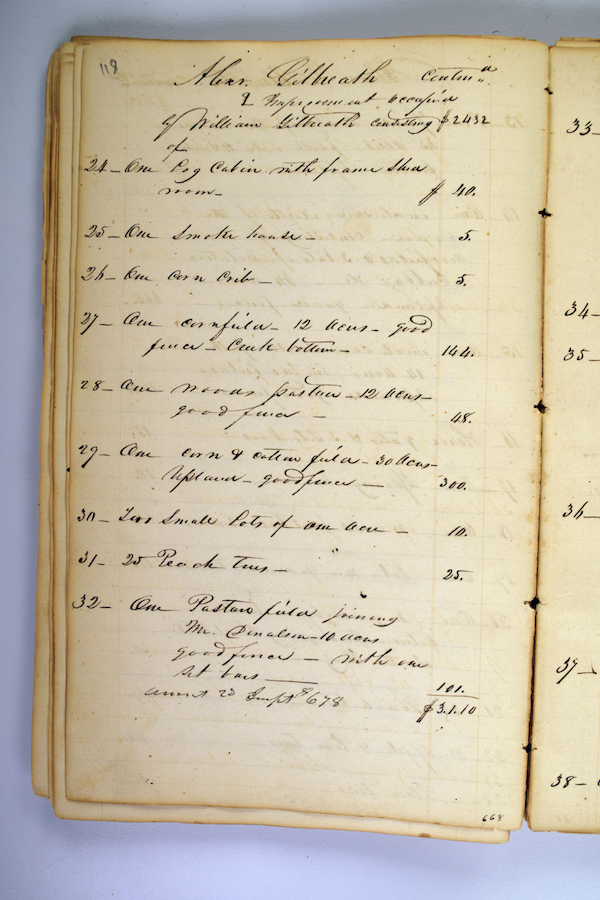 119
Alexr. Gilbreath Continud
2 Improvement occupied
by William Gilbreath consisting $2432
of
24 – One Log Cabin with frame Shed
room – $ 40.
25 – One Smoke house – 5.
26 – One Corn Crib – 5.
27 – One cornfield – 12 Acres – good
fence – Creek bottom – 144.
28 – One woods pasture – 12 Acres –
good fence – 48.
29 – One corn & cotton field – 30 Acres
Upland – good fence – 300.
30 – Two Small Lots of one Acre – 10.
31 – 25 Peach trees – 25.
32 – One Pasture field joining
Mr. Donalson – 10 Acres
good fence – with one
set bars – 101.
amount 2d Impt $678 $3.1.10
668
33 –
34 –
35 –
36 –
37 –
38 –